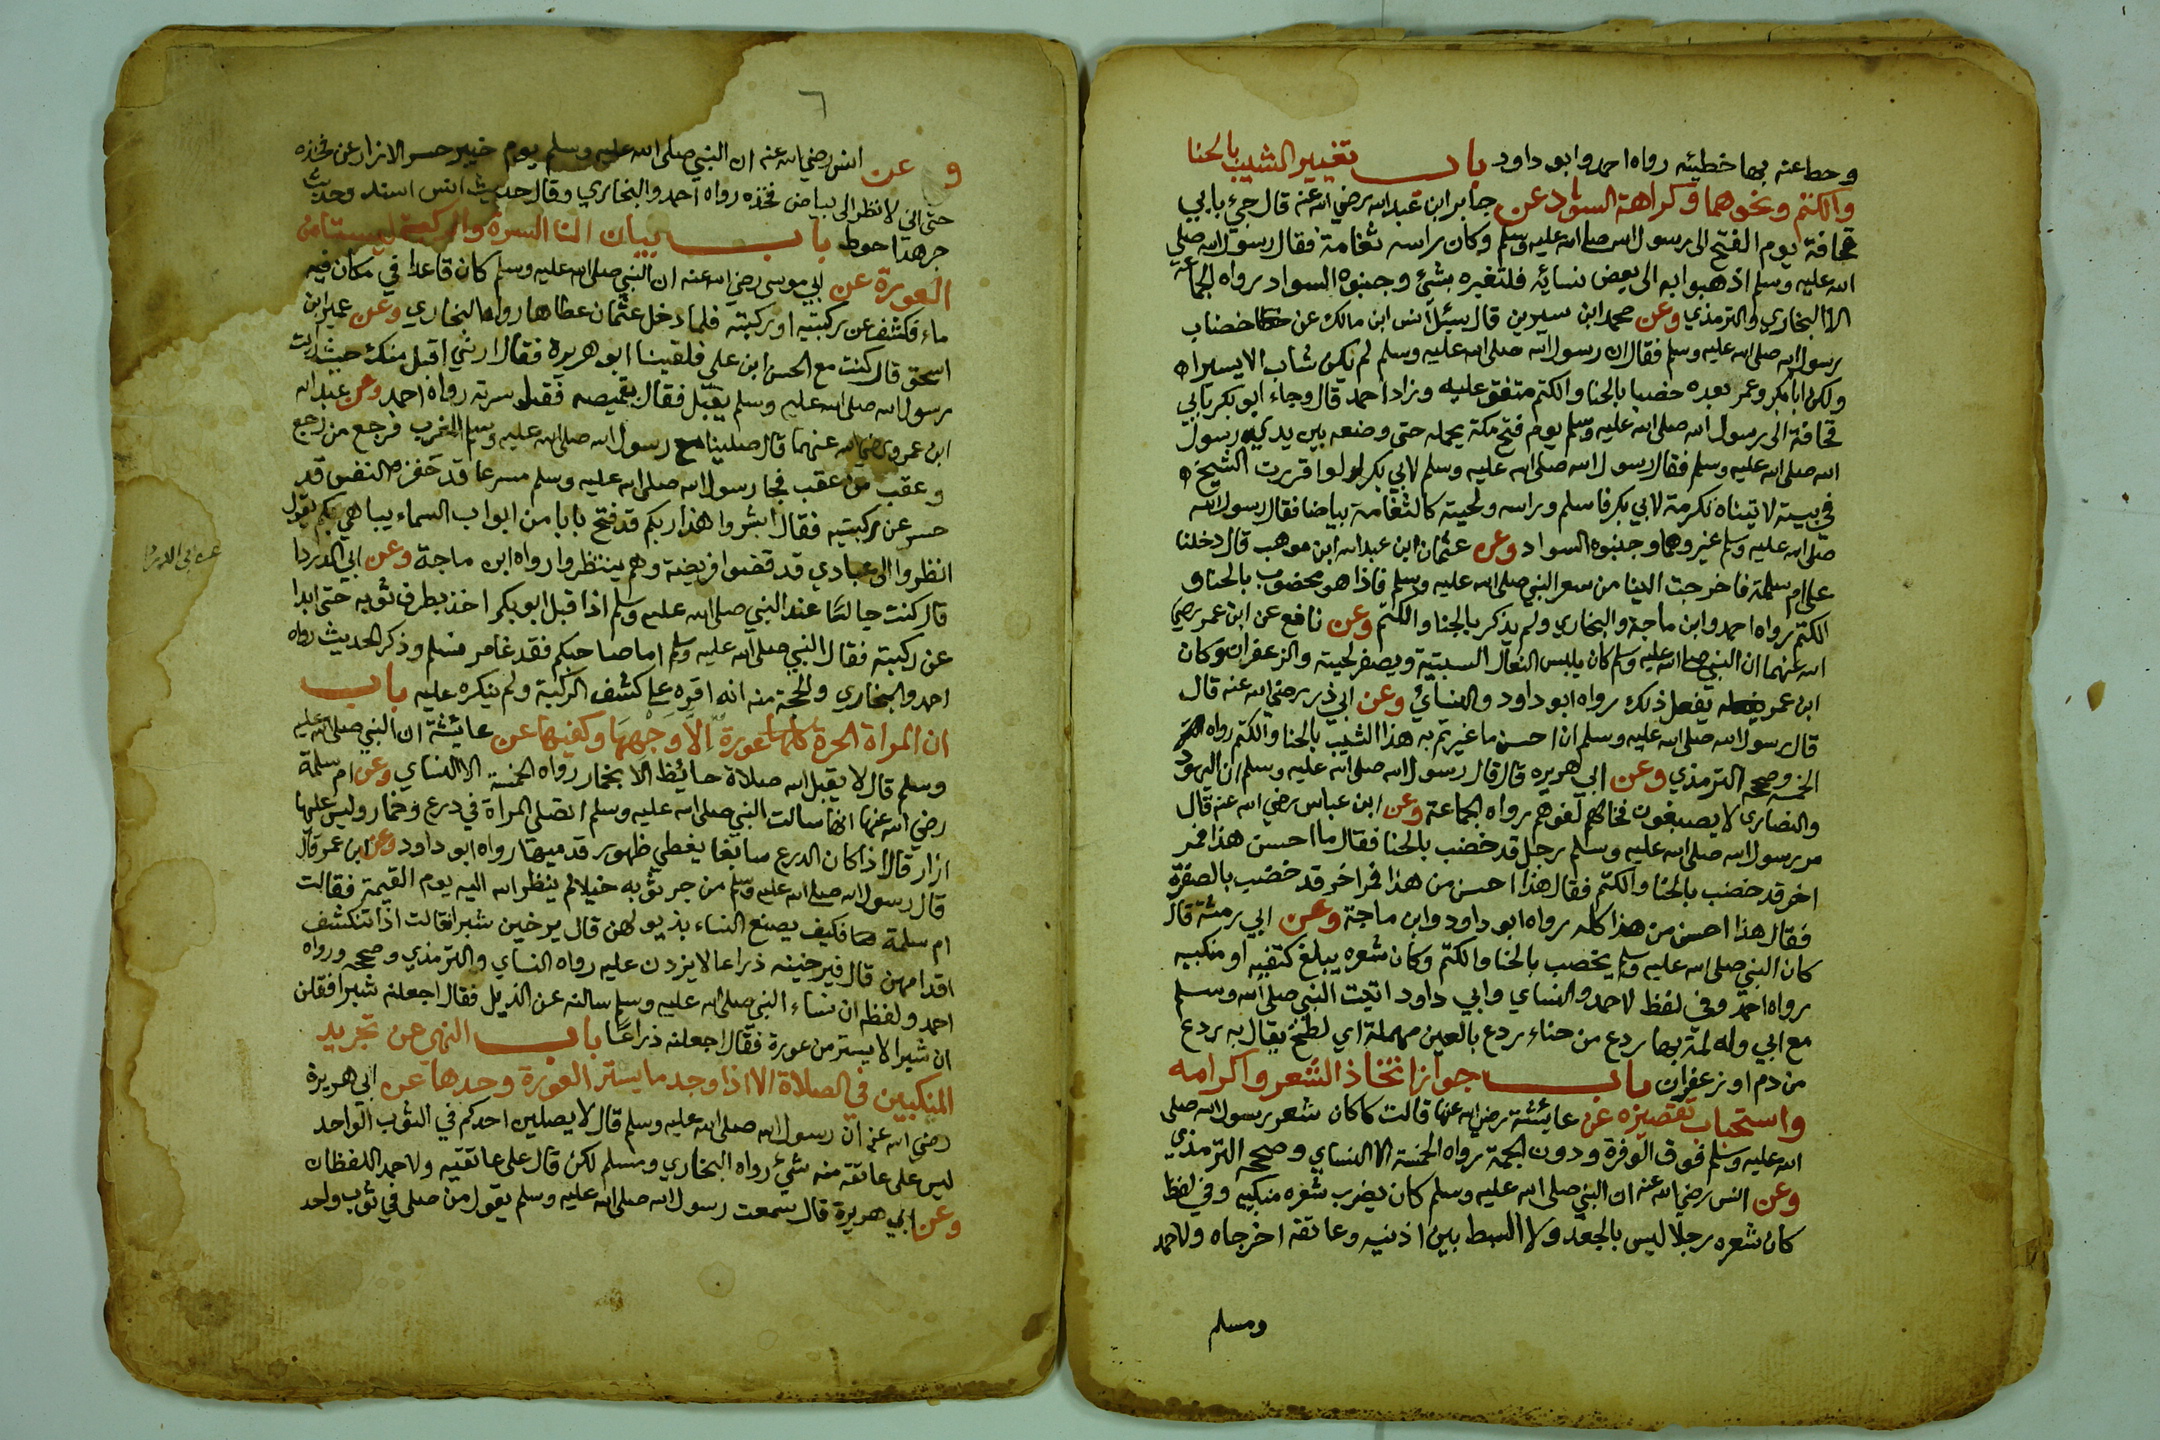 وحط عنه بها خطيئه رواه احمد وابو داود باب تغيير الشيب بالحنا
والكتم ونحوهما وكراهة السواد عن جابر ابن عبد الله رضي الله عنه قال جيء بابي
قحافة يوم الفتح الى رسول الله صلى الله عليه وسلم وكان راسه ثغامة فقال رسول الله صلى
الله عليه وسلم اذهبوا به الى بعض نسائه فلتغيره بشئ وجنبوه السواد رواه الجماعة
الا البخاري والترمذي وعن محمد ابن سيرين قال سئل انس ابن مالك عن خضاب
رسول الله صلى الله عليه وسلم فقال ان رسول الله صلى الله عليه وسلم لم يكن شاب الا يسيرا
ولكن ابا بكر وعمر بعده خضبا بالحنا والكتم متفق عليه وزاد احمد قال وجاء ابو بكر بابي
قحافة الى رسول الله صلى الله عليه وسلم يوم فتح مكة يحمله حتى وضعه بين يدي رسول
الله صلى الله عليه وسلم فقال رسول الله صلى الله عليه وسلم لابي بكر لو اقررت الشيخ
في بيته لاتيناه تكرمة لابي بكر فاسلم وراسه ولحيته كالثغامة بياضا فقال رسول الله
صلى الله عليه وسلم غيروهما وجنبوه السواد وعن عثمان ابن عبد الله ابن موهب قال دخلنا
على ام سلمة فاخرجت الينا من شعر النبي صلى الله عليه وسلم فاذا هو مخضوب بالحنا و
الكتم رواه احمد وابن ماجة والبخاري ولم يذكر بالحنا والكتم وعن نافع عن ابن عمر رضي
الله عنهما ان النبي صلى الله عليه وسلم كان يلبس النعال السبتية ويصفر لحيته والزعفران وكان
ابن عمر يفعل ذلك رواه ابو داود والنسائي وعن ابي ذر رضي الله عنه قال
قال رسول الله صلى الله عليه وسلم ان احسن ما غيرتم به هذا الشيب بالحنا والكتم رواه
الخمسه وصححه الترمذي وعن ابي هريره قال قال رسول الله صلى الله عليه وسلم ان اليهود
والنصارى لا يصبغون فخالفوهم رواه الجماعة وعن ابن عباس رضي الله عنه قال
مر برسول الله صلى الله عليه وسلم رجل قد خضب بالحنا فقال ما احسن هذا فمر
اخر قد خضب بالحنا والكتم فقال هذا احسن من هذا فمر اخر قد خضب بالصفرة
فقال هذا احسن من هذا كله رواه ابو داود وابن ماجة وعن ابي رمثة قال
كان النبي صلى الله عليه وسلم يخضب بالحنا والكتم وكان شعره يبلغ كتفيه او منكبيه
رواه احمد وفي لفظ لاحمد والنساي وابي داود اتيت النبي صلى الله وسلم
مع ابي وله لمة بها ردع من حناء ردع بالعين مهملة اي لطخ يقال به ردع
من دم او زعفران باب جواز اتخاذ الشعر واكرامه
واستحباب تقصيره عن عايشة رضي الله عنها قالت كان شعر رسول الله صلى
الله عليه وسلم فوق الوفرة ودون الجمة رواه الخمسة الا النساي وصححه الترمذي
وعن انس رضي الله عنه ان النبي صلى الله عليه وسلم كان يضرب شعره منكبيه وفي لفظ
كان شعره رجلا ليس بالجعد ولا السبط بين اذنيه وعاتقه اخرجاه ولاحمد
ومسلم
٦
وعن انس رضي الله عنه ان النبي صلى الله عليه وسلم يوم خيبر حسر الازار عن فخذه
حتى اني لانظر الى بياض فخذه رواه احمد والبخاري وقال حديث انس اسند وحديث
جرهد احوط باب بيان ان السرة والركبة ليستا من
العورة عن ابي موسى رضي الله عنه ان النبي صلى الله عليه وسلم كان قاعدا في مكان فيه
ماء فكشف عن ركبتيه او ركبته فلما دخل عثمان غطاها رواه البخاري وعن عمير ابن
اسحق قال كنت مع الحسن ابن علي فلقينا ابو هريرة فقال ارني اقبل منك حيث رايت
رسول الله صلى الله عليه وسلم يقبل فقال بقميصه فقبل سرته رواه احمد وعن عبد الله
ابن عمرو رضي الله عنهما قال صلينا مع رسول الله صلى الله عليه وسلم المغرب فرجع من رجع
وعقب من عقب فجا رسول الله صلى الله عليه وسلم مسرعا قد حفزه النفس قد
حسر عن ركبتيه فقال ابشروا هذا ربكم قد فتح بابا من ابواب السماء يباهي بكم يقول
انظروا الى عبادي قد قضوا فريضة وهم ينتظروا رواه ابن ماجة وعن ابي الدردا
قال كنت جالسا عند النبي صلى الله عليه وسلم اذا قبل ابو بكر اخذ بطرف ثوبه حتى ابدا
عن ركبته فقال النبي صلى الله عليه وسلم اما صاحبكم فقد غامر فسلم وذكر الحديث رواه
احمد والبخاري والحجة منه انه اقره على كشف الركبة ولم ينكره عليه باب
ان المراة الحرة كلها عورة الا وجهها وكفيها عن عايشة ان النبي صلى الله عليه
وسلم قال لا يقبل الله صلاة حايض الا بخمار رواه الخمسة الا النساي وعن ام سلمة
رضي الله عنها انها سالت النبي صلى الله عليه وسلم اتصلي المراة في درع وخمار وليس عليها
ازار قال اذا كان الدرع سابغا يغطي ظهور قدميها رواه ابو داود وعن ابن عمر قال
قال رسول الله صلى الله عليه وسلم من جر ثوبه خيلا لم ينظر الله اليه يوم القيمة فقالت
ام سلمة فكيف يصنع النساء بذيولهن قال يرخين شبرا قالت اذا تنكشف
اقدامهن قال فيرخينه ذراعا لا يزدن عليه رواه النساي والترمذي وصححه ورواه
احمد ولفظه ان نساء النبي صلى الله عليه وسلم سالنه عن الذيل فقال اجعلنه شبرا فقلن
ان شبرا لا يستر من عورة فقال اجعلنه ذراعا باب النهي عن تجريد
المنكبين في الصلاة الا اذا وجد ما يستر العورة وحدها عن ابي هريرة
رضي الله عنه ان رسول الله صلى الله عليه وسلم قال لا يصلين احدكم في الثوب الواحد
ليس على عاتقه منه شئ رواه البخاري ومسلم لكن قال على عاتقيه ولاحمد اللفظان
وعن ابي هريرة قال سمعت رسول الله صلى الله عليه وسلم يقول من صلى في ثوب واحد
عن ابي الدردا